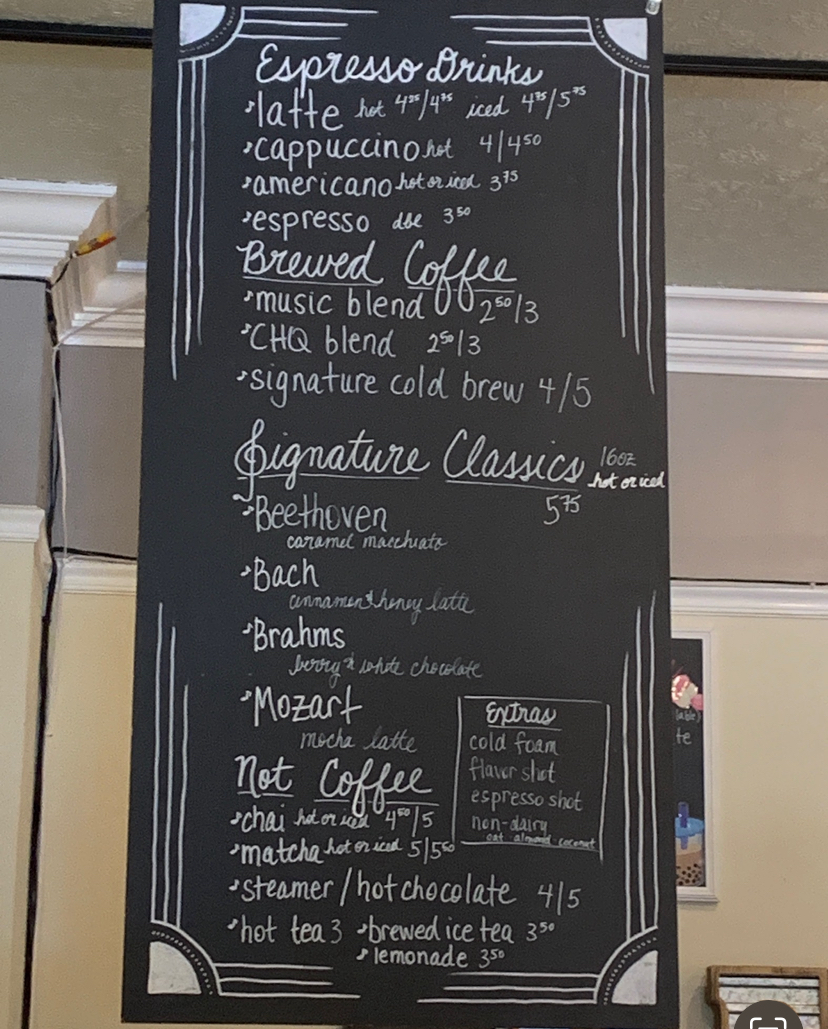 Espresso Drinks
latte hot 4²⁵/4⁷⁵ iced 4⁷⁵/5⁷⁵
cappuccino hot 4/4⁵⁰
americano hot or iced 3⁷⁵
espresso dbe 3⁵⁰
Brewed Coffee
music blend 2⁵⁰/3
CHQ blend 2⁵⁰/3
signature cold brew 4/5
Signature Classics 16oz
hot or iced
5⁷⁵
Beethoven
caramel macchiato
Bach
cinnamon & honey latte
Brahms
berry & white chocolate
Mozart
mocha latte
Extras
cold foam
flavor shot
espresso shot
non-dairy
oat almond coconut
Not Coffee
chai hot or iced 4⁵⁰/5
matcha hot or iced 5/5⁵⁰
steamer / hot chocolate 4/5
hot tea 3 brewed ice tea 3⁵⁰
lemonade 3⁵⁰